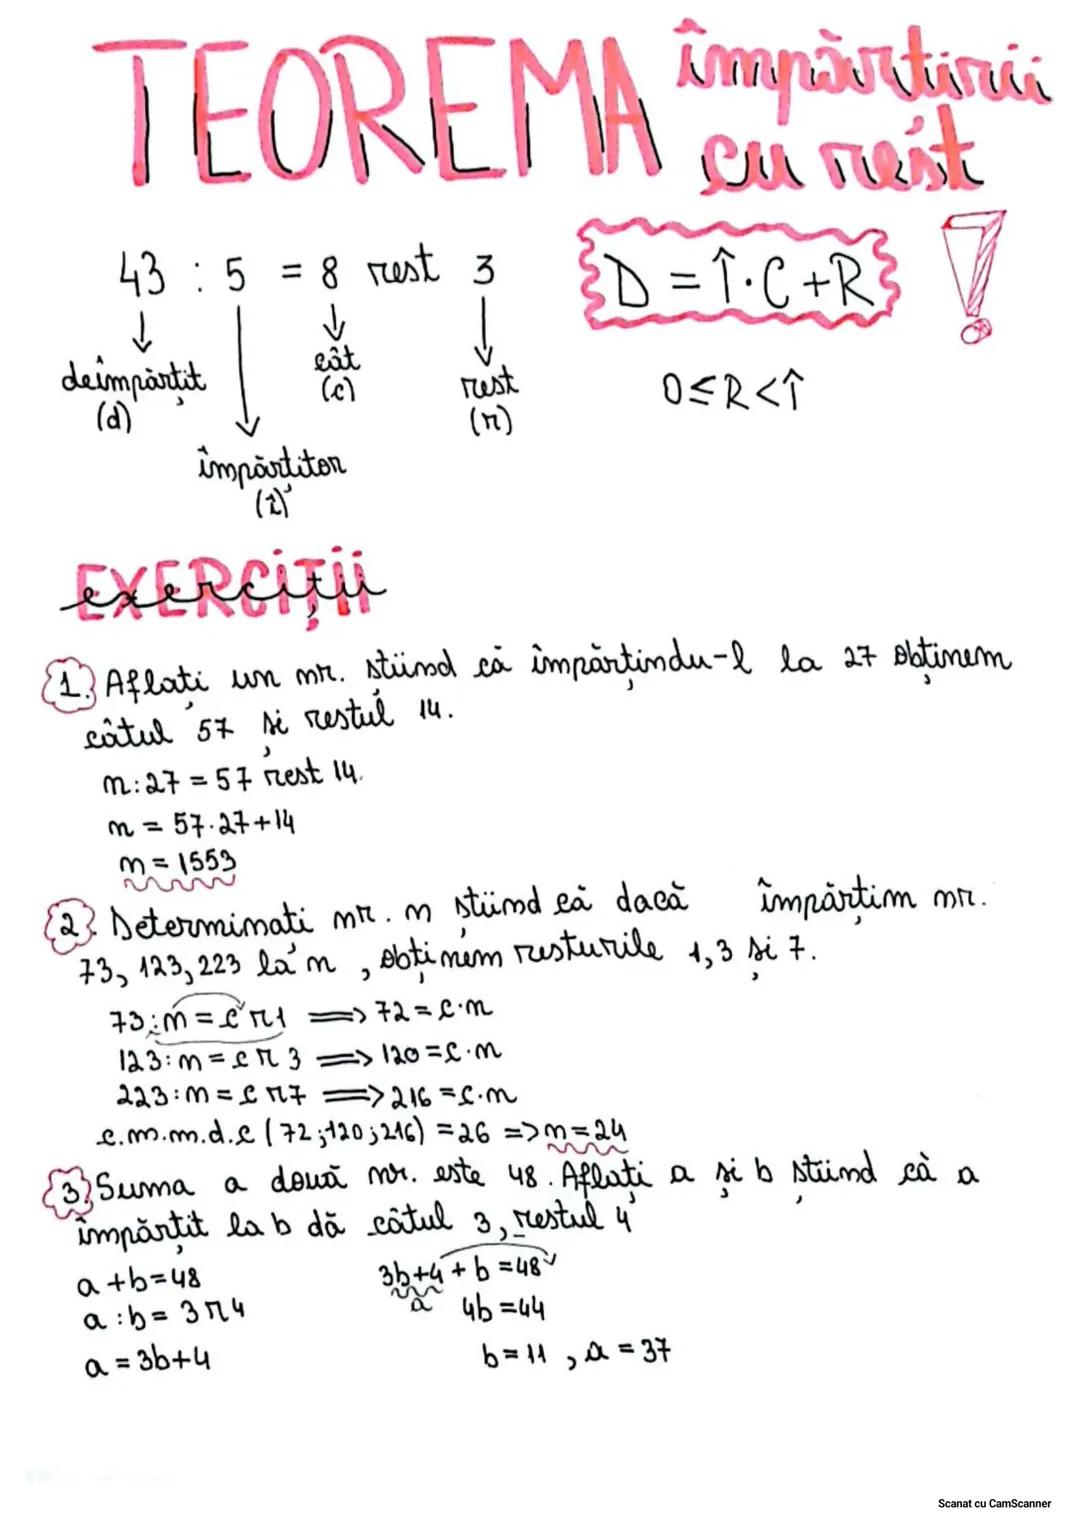 TEOREMA împărțirii
cu rest
43 : 5 = 8 rest 3
D = Î·C+R
deîmpărțit
(d)
cât
(c)
rest
(r)
0≤R<Î
împărțitor
(î)
EXERCIȚII
exerciții
1. Aflați un nr. știind că împărțindu-l la 27 obținem
câtul 57 și restul 14.
n:27 = 57 rest 14.
n = 57·27+14
n = 1553
2. Determinați nr. n știind că dacă împărțim nr.
73, 123, 223 la n, obținem resturile 1,3 și 7.
73:n = c r 1 => 72 = c·n
123:n = c r 3 => 120 = c·n
223:n = c r 7 => 216 = c·n
c.m.m.d.c (72;120;216) = 26 => n = 24
3. Suma a două nr. este 48. Aflați a și b știind că a
împărțit la b dă câtul 3, restul 4
a + b = 48
a : b = 3 r 4
a = 3b+4
3b+4 + b = 48
a
4b = 44
b = 11 , a = 37
Scanat cu CamScanner